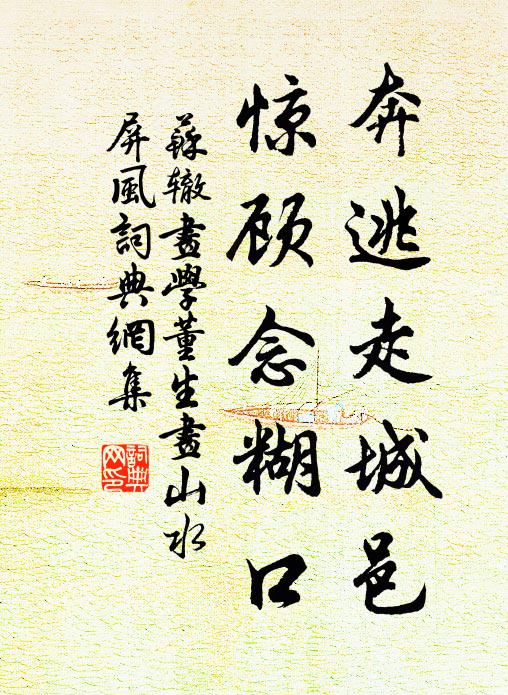 奔逃走城邑
惊顾念糊口
蘇辙畫學董生畫山水
屏風詞典網集
詞典
网印